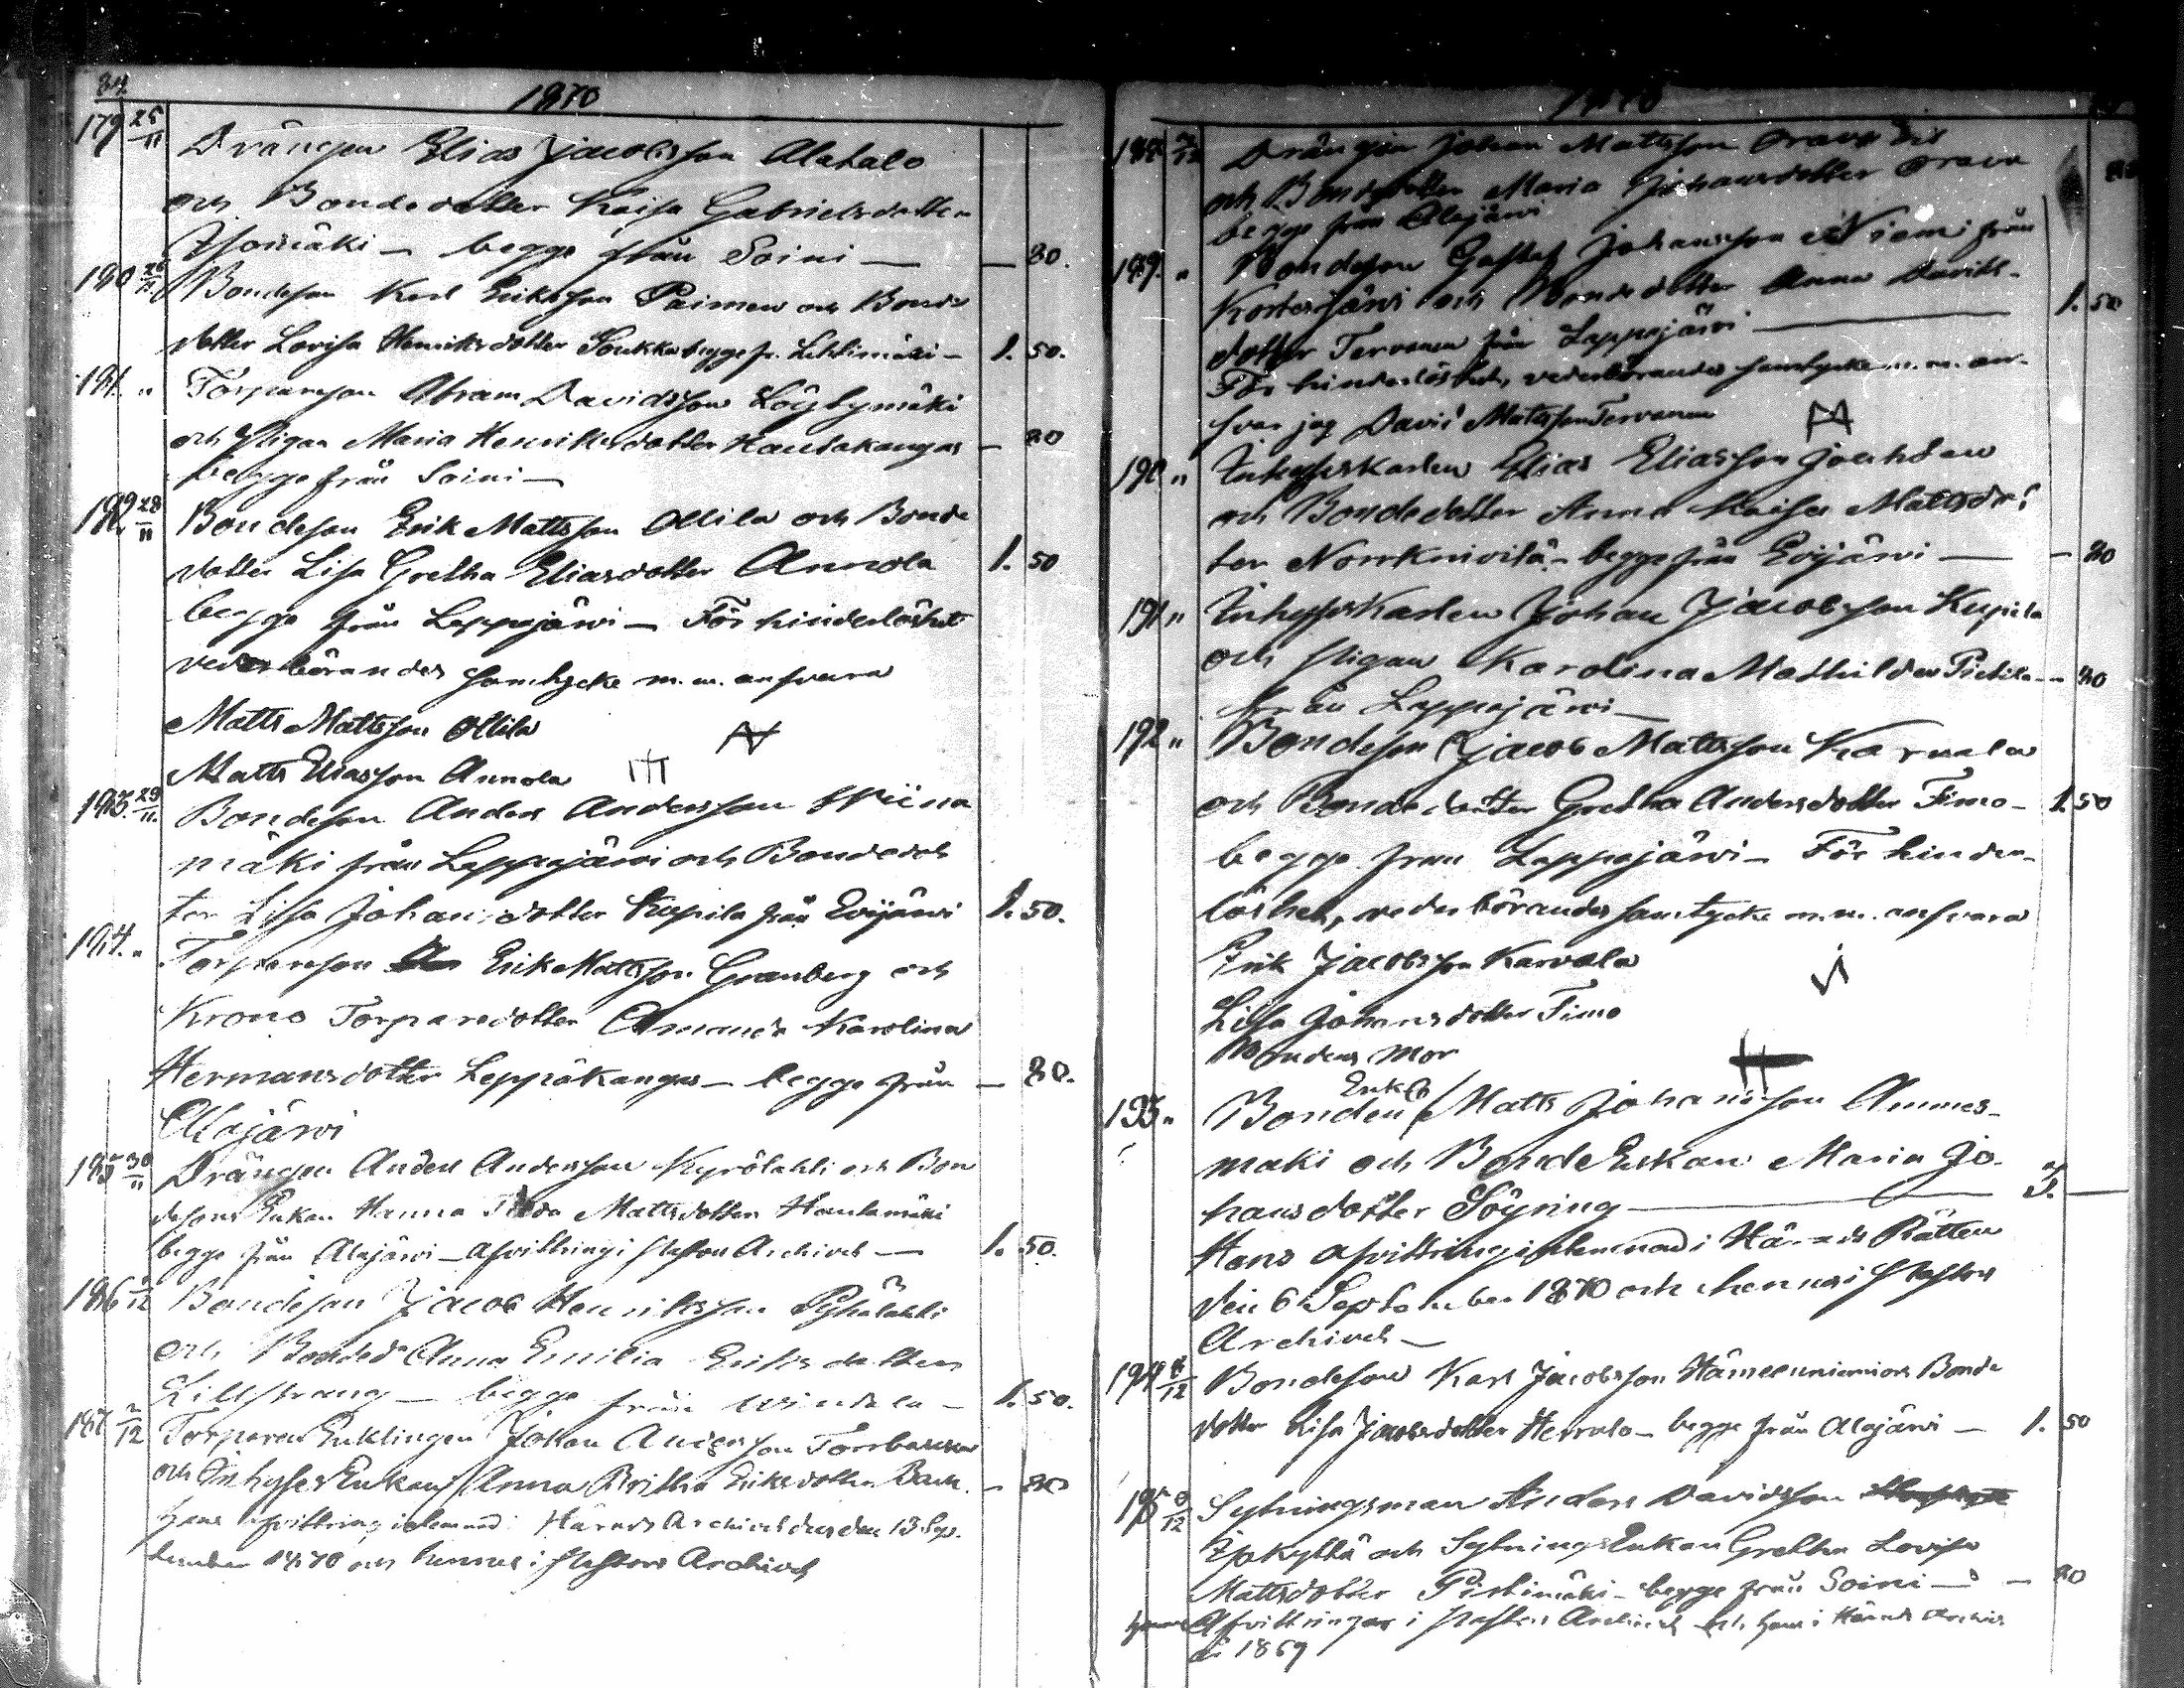 84
1870
179 25/11 Drängen Elias Jacobsson Alatalo
och Bondedotter Kaisa Gabrielsdotter
Isomäki — begge från Soini — — 80.
180 26/11 Bondeson Karl Eriksson Paimen och Bonde
dotter Lovisa Henriksdotter Soukka begge fr. Lehtimäki — 1. 50.
181. " Torpareson Abram Davidsson Löytymäki
och Pigan Maria Henriksdotter Hautakangas — 80
begge från Soini —
182. 28/11 Bondeson Erik Mattsson Ollila och Bonde
dotter Lisa Gretha Eliasdotter Annola 1. 50
begge från Lappajärvi — För hinderlöshet
vederbörandes samtycke m. m. ansvara
Matts Mattsson Ollila
Matts Eliasson Annola
183. 29/11. Bondeson Anders Andersson Wiina
mäki från Lappajärvi och Bondedot
ter Lisa Johansdotter Kupila från Evijärvi 1. 50.
184. " Torpareson Erik Mattsson Granberg och
Krono Torparedotter Amanda Karolina
Hermansdotter Leppäkangas — begge från — 80.
Alajärvi
185 30/11 Drängen Anders Andersson Kyrölahti och Bon
desons Enkan Hanna Mattsdotter Hautamäki
begge från Alajärvi — afvittring i Pastors Archivet — 1. 50.
186 /12 Bondeson Jacob Henriksson Pyhälahti
och Bonded. Anna Emilia Eriksdotter
Lillstrang — begge från Windala — 1. 50.
187 2/12 Torpare Enklingen Johan Andersson
och Inhyses Enkan Anna Britha Eriksdotter — 80
hans afvittring inlemnad i Härads Archivet den 13 Sep-
tember 1870 och hennes i Pastors Archivet
1870
188 2/12 Drängen Johan Mattsson Orava
och Bondedotter Maria Johansdotter Orava 80
begge från Alajärvi
189. " Bondeson Gustaf Johansson Niemi från
Kortesjärvi och Bondedotter Anna Davids-
dotter Tervonen från Lappajärvi — 1. 50
För hinderlöshet, vederbörandes samtycke m. m. an-
svar jag David Mattsson Tervonen
190 " Inhyseskarlen Elias Eliasson
och Bondedotter Anna Kaisa Mattsdot
ter Norrkniivilä — begge från Evijärvi — — 80
191 " Inhyseskarlen Johan Jacobsson Kupila
och Pigan Karolina Mathilda Pietilä — 80
från Lappajärvi —
192 " Bondeson Jacob Mattsson Karvala
och Bondedotter Gretha Andersdotter Timo — 1. 50
begge från Lappajärvi — För hinder-
löshet, vederbörandes samtycke m. m. ansvara
Erik Jacobsson Karvala
Lisa Johansdotter Timo
Brudens Mor
193 " Bonden Enkl. Matts Johansson Ammes-
mäki och BondeEnkan Maria Jo-
hansdotter Söyring — 3. —
Hans afvittring inlemnad i Härads Rätten
den 6 September 1870 och hennes i Pastors
Archivet —
194 /12 Bondeson Karl Jacobsson Hämeenniemi och Bonde
dotter Lisa Jacobsdotter Herrala — begge från Alajärvi — 1. 50
195 /12 Sytningsman Anders Davidsson
och SytningsEnkan Gretha Lovisa
Mattsdotter — begge från Soini — — 80
Afvittringar i Pastors Archivet och hans i Härads Archiv
1869